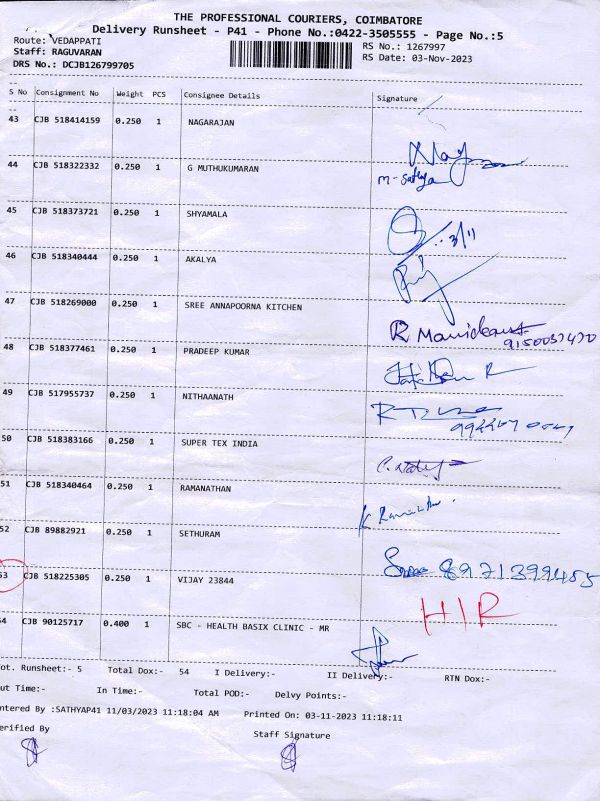 THE PROFESSIONAL COURIERS, COIMBATORE
Delivery Runsheet - P41 - Phone No.:0422-3505555 - Page No.:5
Route: VEDAPPATI RS No.: 1267997
Staff: RAGUVARAN RS Date: 03-Nov-2023
DRS No.: DCJB126799705
S No Consignment No Weight PCS Consignee Details Signature
43 CJB 518414159 0.250 1 NAGARAJAN
44 CJB 518322332 0.250 1 G MUTHUKUMARAN M-Sathya
45 CJB 518373721 0.250 1 SHYAMALA 3/11
46 CJB 518340444 0.250 1 AKALYA
47 CJB 518269000 0.250 1 SREE ANNAPOORNA KITCHEN
48 CJB 518377461 0.250 1 PRADEEP KUMAR
49 CJB 517955737 0.250 1 NITHAANATH
50 CJB 518383166 0.250 1 SUPER TEX INDIA
51 CJB 518340464 0.250 1 RAMANATHAN
52 CJB 89882921 0.250 1 SETHURAM 8971399455
53 CJB 518225305 0.250 1 VIJAY 23844 HIR
54 CJB 90125717 0.400 1 SBC - HEALTH BASIX CLINIC - MR
ot. Runsheet:- 5 Total Dox:- 54 I Delivery:- II Delivery:- RTN Dox:-
ut Time:- In Time:- Total POD:- Delvy Points:-
ntered By :SATHYAP41 11/03/2023 11:18:04 AM Printed On: 03-11-2023 11:18:11
erified By Staff Signature